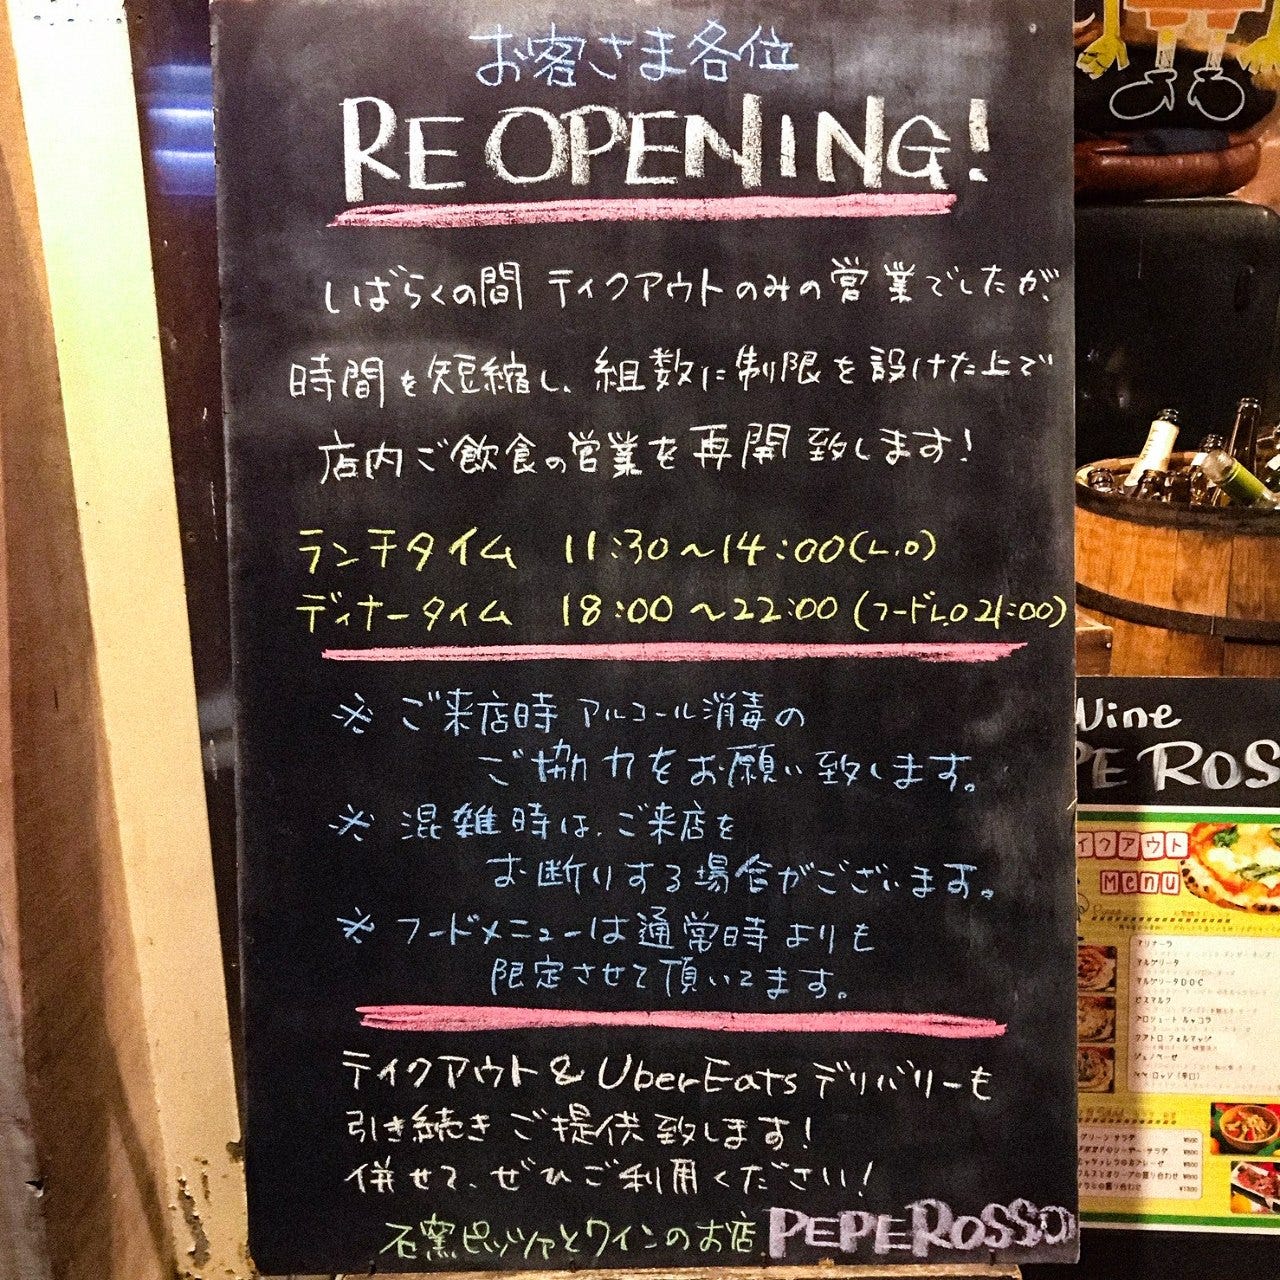 お客さま各位
RE OPENING!
しばらくの間 テイクアウトのみの営業でしたが、
時間を短縮し、組数に制限を設けた上で
店内ご飲食の営業を再開致します!
ランチタイム 11:30~14:00(L.O)
ディナータイム 18:00~22:00(フードL.O 21:00)
※ ご来店時アルコール消毒の
ご協力をお願い致します。
※ 混雑時は、ご来店を
お断りする場合がございます。
※ フードメニューは通常時よりも
限定させて頂いてます。
テイクアウト & UberEats デリバリーも
引き続きご提供致します!
併せて、ぜひご利用ください!
石窯ピッツァとワインのお店 PEPEROSSO
Wine
PE ROS
イクアウト
MENU
マリナーラ
マルゲリータ
マルゲリータDOC
ビスマルク
クアトロ フォルマッジ
ジェノベーゼ
グリーン サラダ